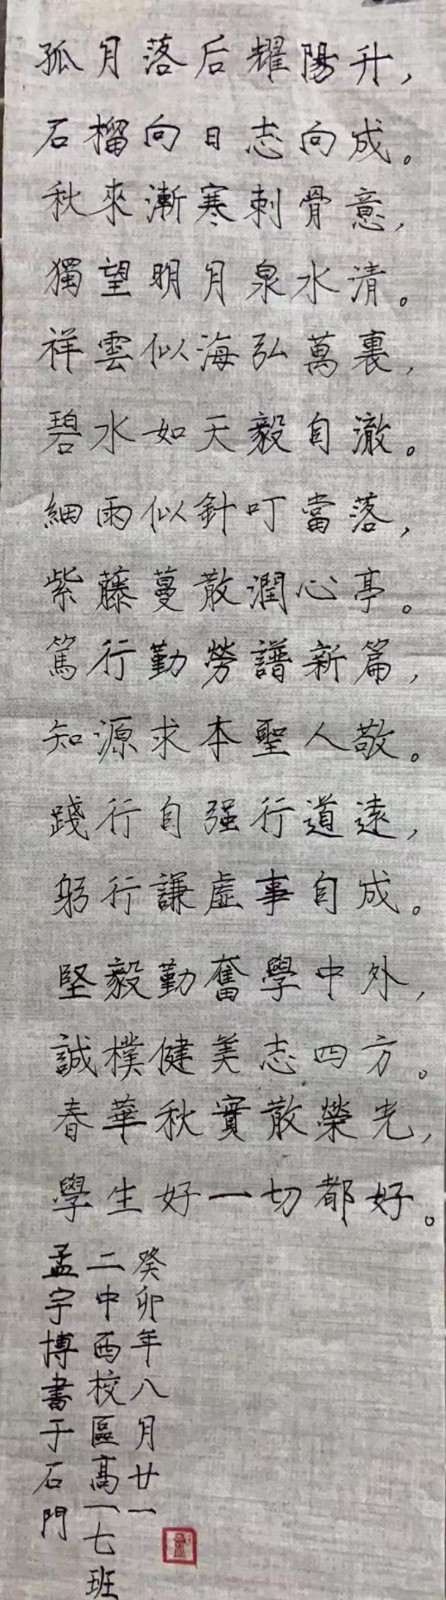 孤月落后耀陽升，
石榴向日志向成。
秋來漸寒刺骨意，
獨望明月泉水清。
祥雲似海弘萬裏，
碧水如天毅自澈。
細雨似針叮當落，
紫藤蔓散潤心亭。
篤行勤勞譜新篇，
知源求本聖人敬。
踐行自强行道遠，
躬行謙虛事自成。
堅毅勤奮學中外，
誠樸健美志四方。
春華秋實散榮光，
學生好一切都好。
癸卯年八月廿一
二中西校區高一七班
孟宇博書于石門